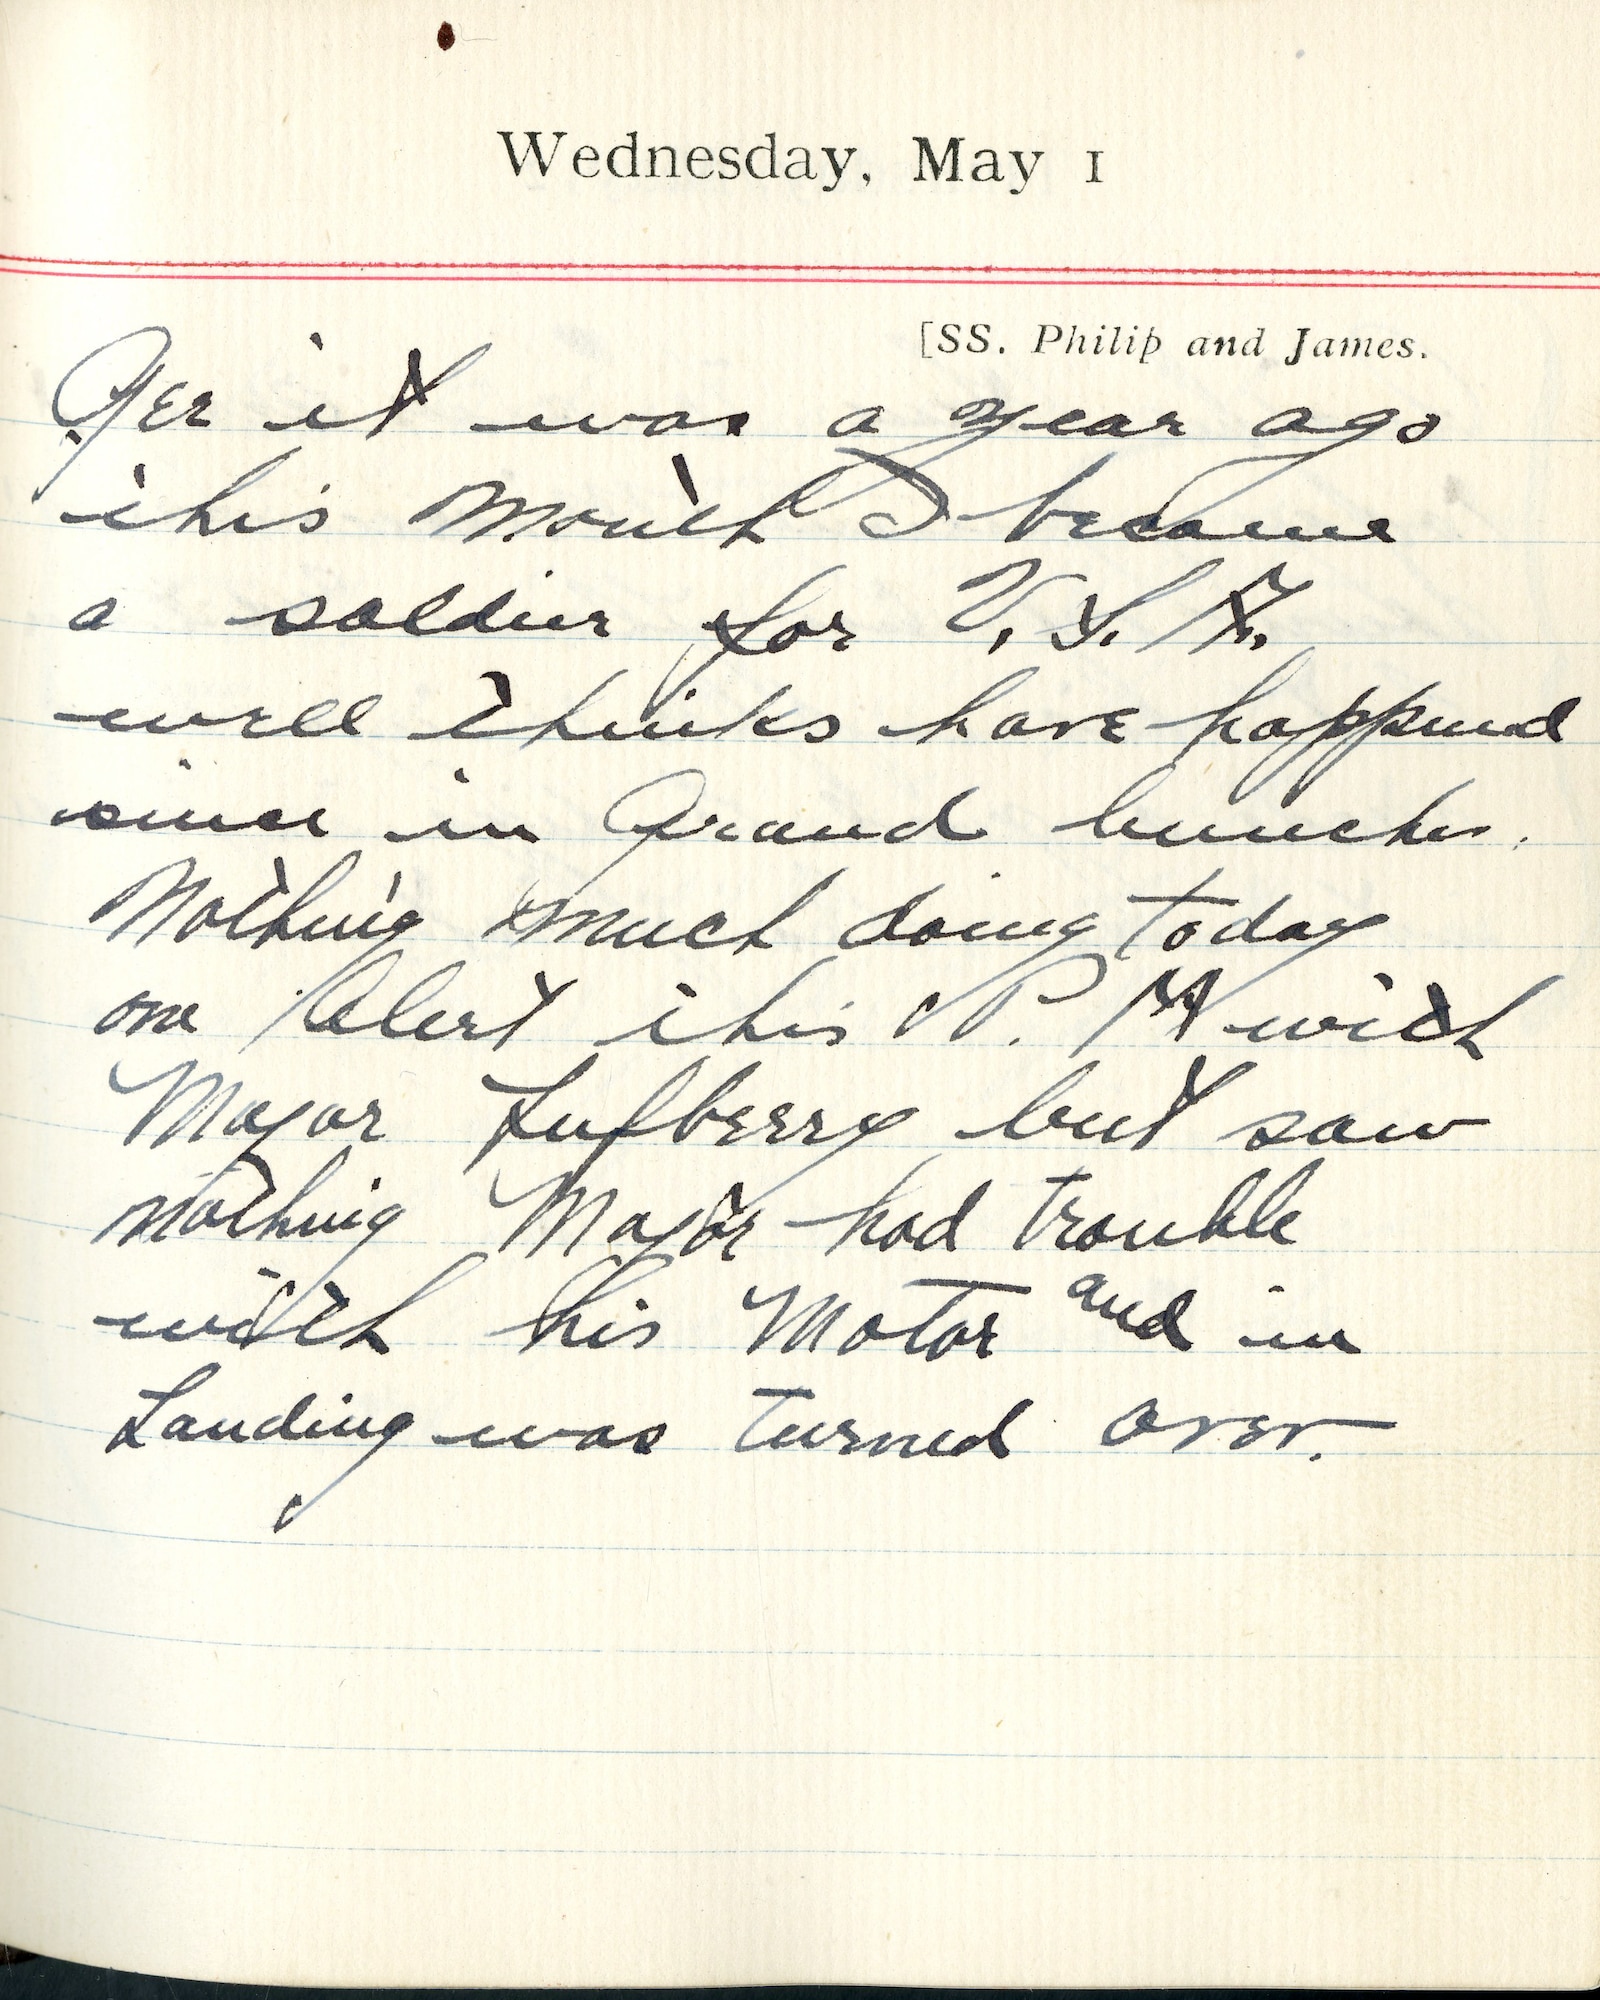 Wednesday, May 1
[SS. Philip and James.
Yer it was a year ago
this Month I became
a soldier for U.S.A.
well thinks have happend
since in Grand bunches.
Nothing much doing today
one Alert this P.M with
Major Lufberry but saw
nothing Major had trouble
with his Motor and in
Landing was turned over.